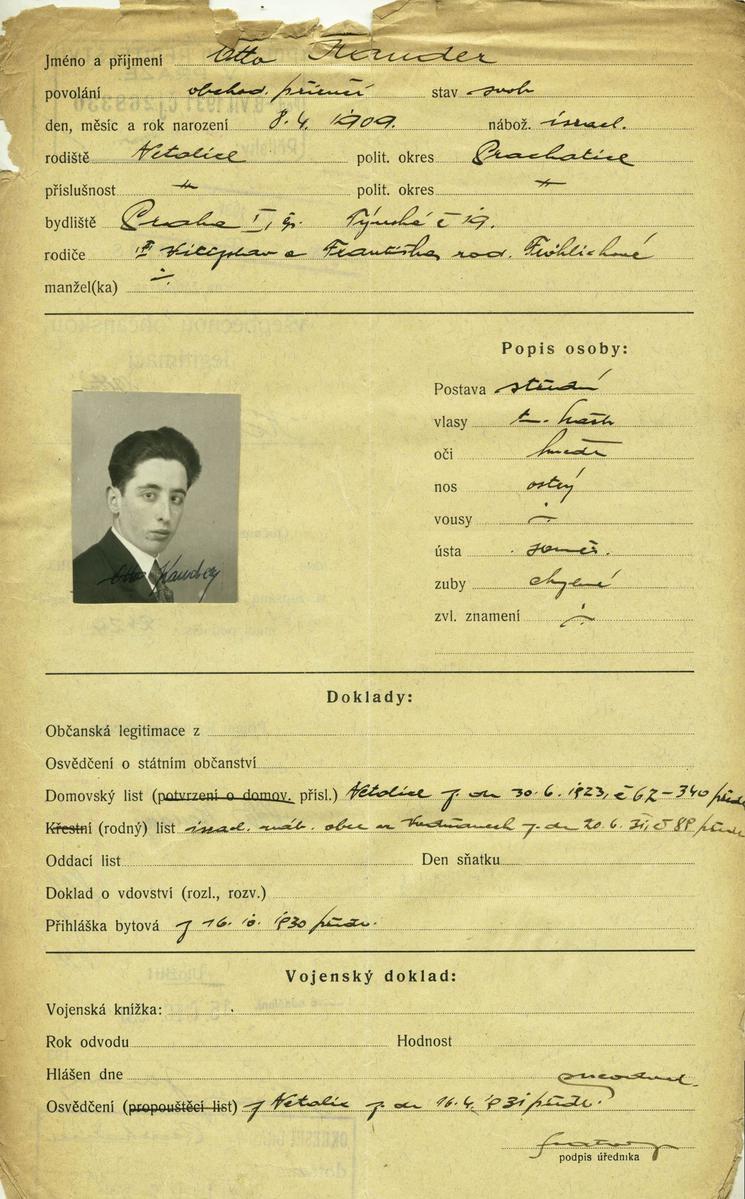 Jméno a příjmení Otto Kauder
povolání obchod. příručí stav svob
den, měsíc a rok narození 8. 4. 1909. nábož. israel.
rodiště Netolice polit. okres Prachatice
příslušnost -"- polit. okres -"-
bydliště Praha I, Týnská č 19.
rodiče Vítězslav a Františka rod. Fröhlichová
manžel(ka) ÷
Popis osoby:
Postava střední
vlasy t. kašt
oči hnědé
nos ostrý
vousy ÷
ústa souměr.
zuby chybné
zvl. znamení ÷
Otto Kauder
Doklady:
Občanská legitimace z
Osvědčení o státním občanství
Domovský list (potvrzení o domov. přísl.) Netolice z dne 30. 6. 1923, č 67-340 předl
Křestní (rodný) list israel. náb. obec ve Vodňanech z dne 20. 6. 31, č 89 předl
Oddací list Den sňatku
Doklad o vdovství (rozl., rozv.)
Přihláška bytová z 16. 10. 1930 předl.
Vojenský doklad:
Vojenská knížka:
Rok odvodu Hodnost
Hlášen dne
Osvědčení (propouštěcí list) z Netolic z dne 16. 4. 1931 předl.
podpis úředníka